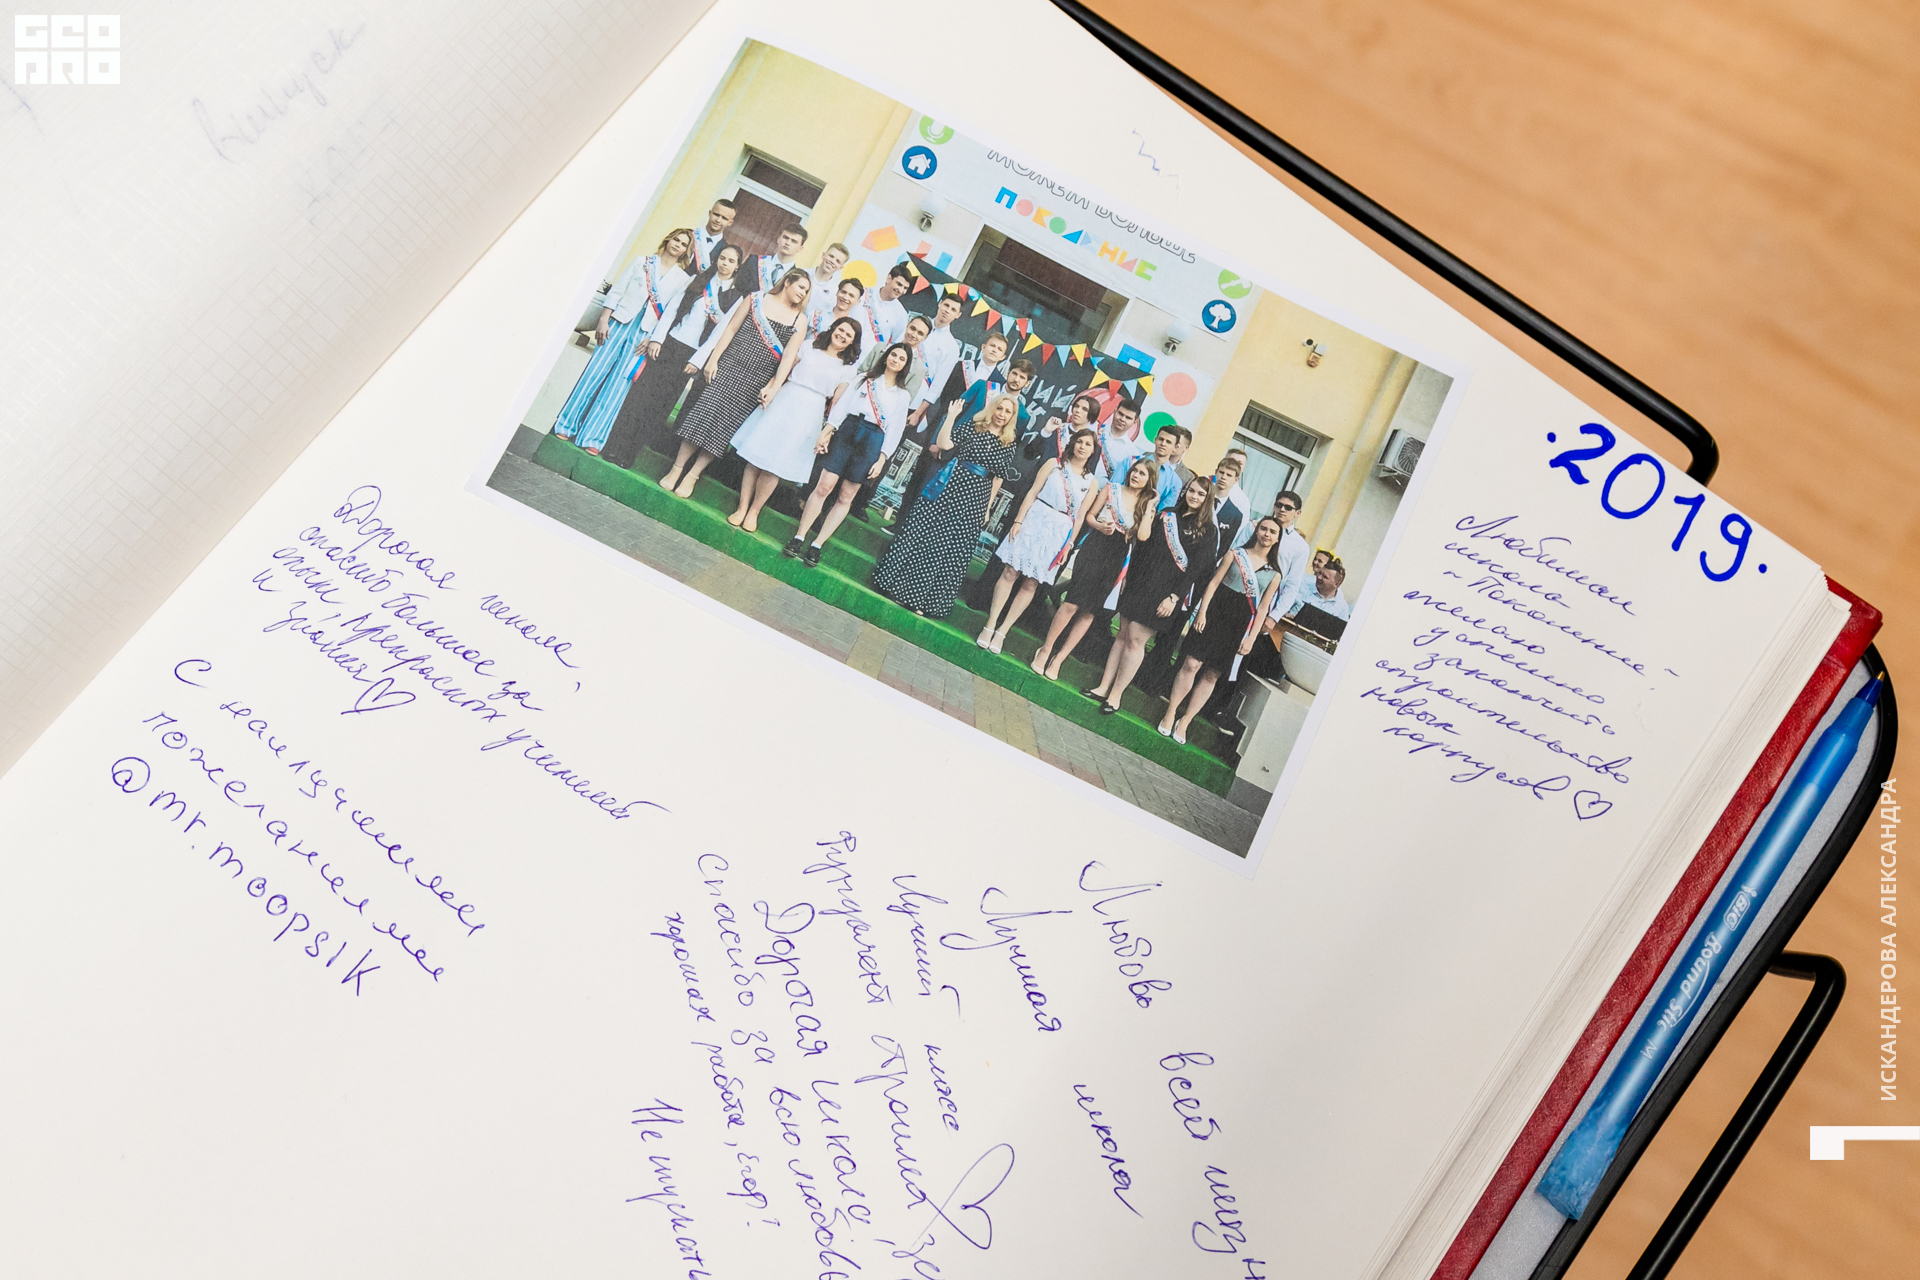 GEO
PRO
выпуск
МОЖЕМ БОЛЬШЕ
ПОКОЛЕНИЕ
.2019.
Любимая
школа
~ Поколение ~
желаю
успешно
закончить
строительство
новых
корпусов ♡
Дорогая школа,
спасибо большое за
опыт, прекрасных учителей
и
знания ♡
С наилучшими
пожеланиями
@mr.moopsik
Любовь всей
Лучшая школа
Лучший класс
Дорогая школа!
Спасибо за всю любовь
хорошая работа,
Не пускать
BIC Round Stic M
ИСКАНДЕРОВА АЛЕКСАНДРА